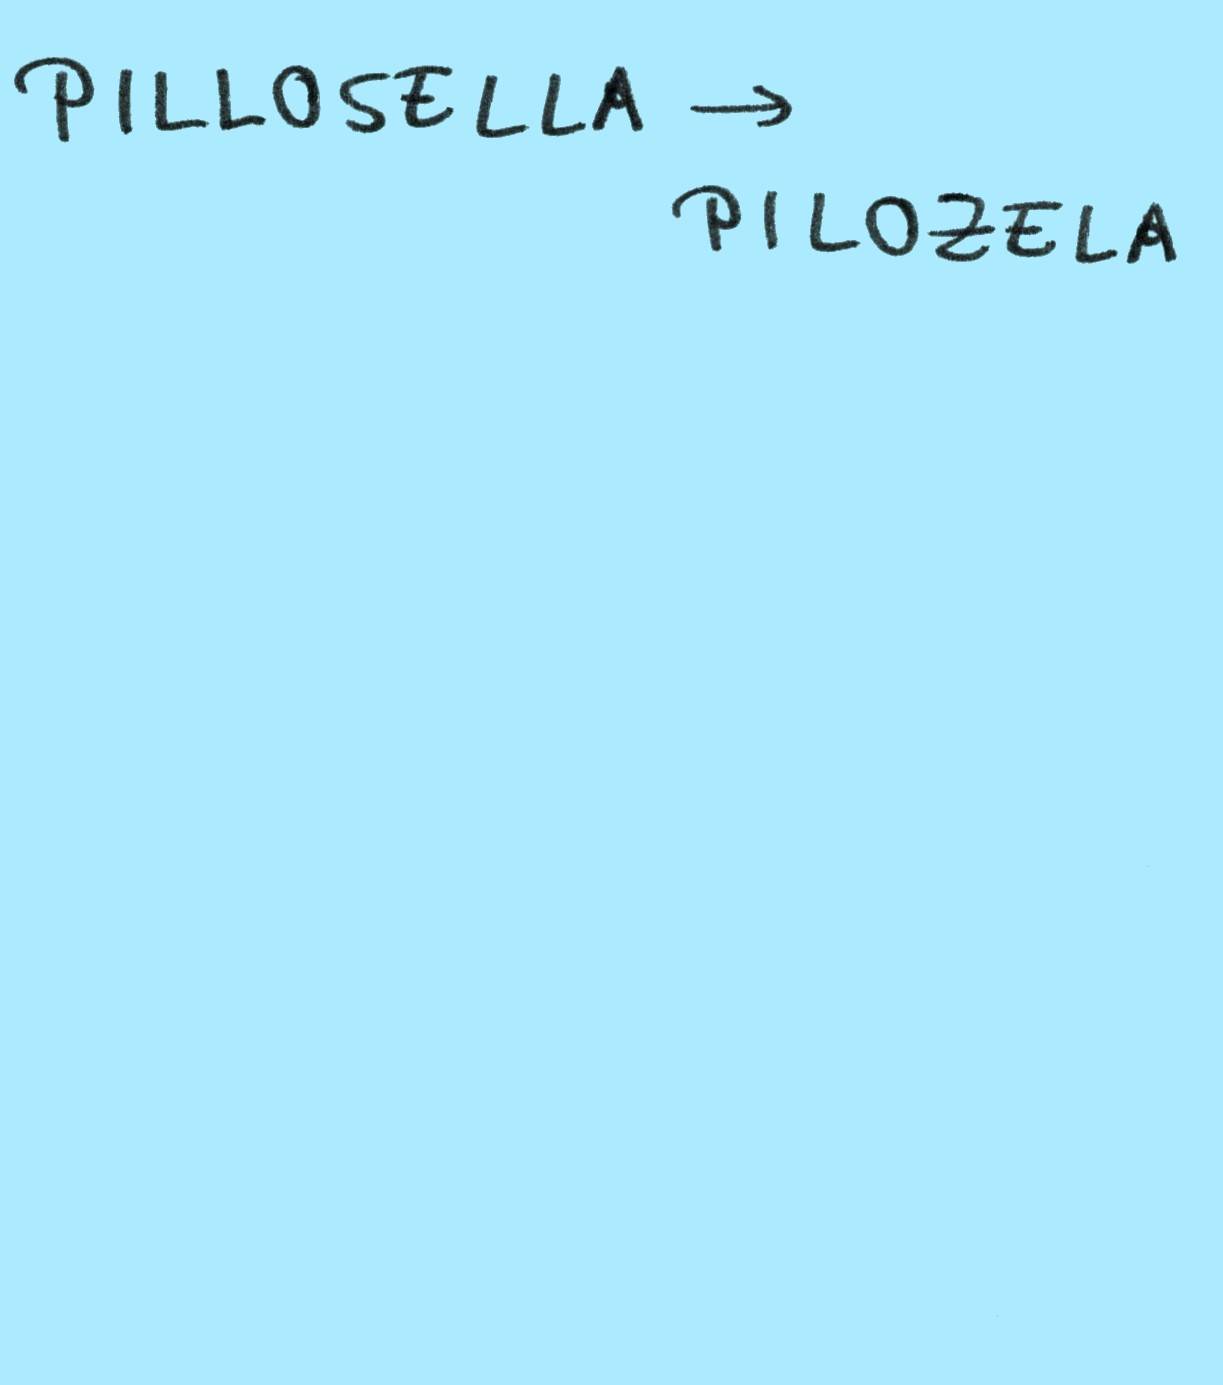 PILLOSELLA →
PILOZELA